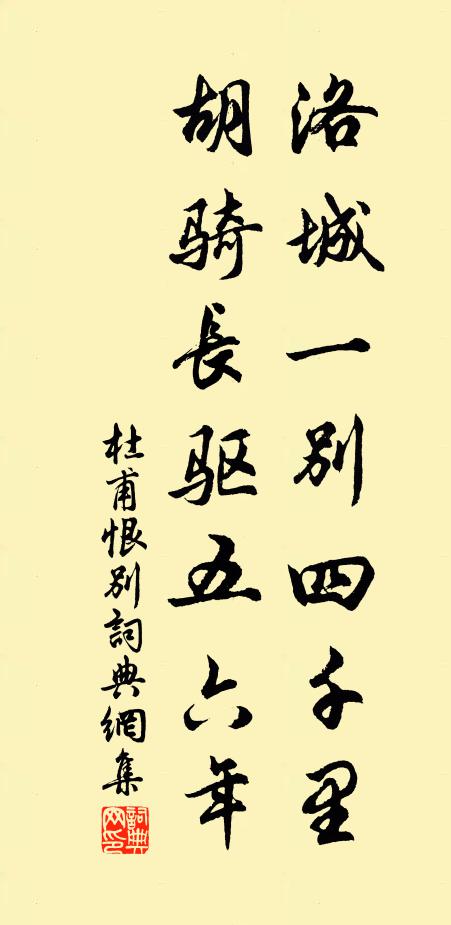 洛城一别四千里
胡骑長驱五六年
杜甫恨别詞典網集
詞典網印